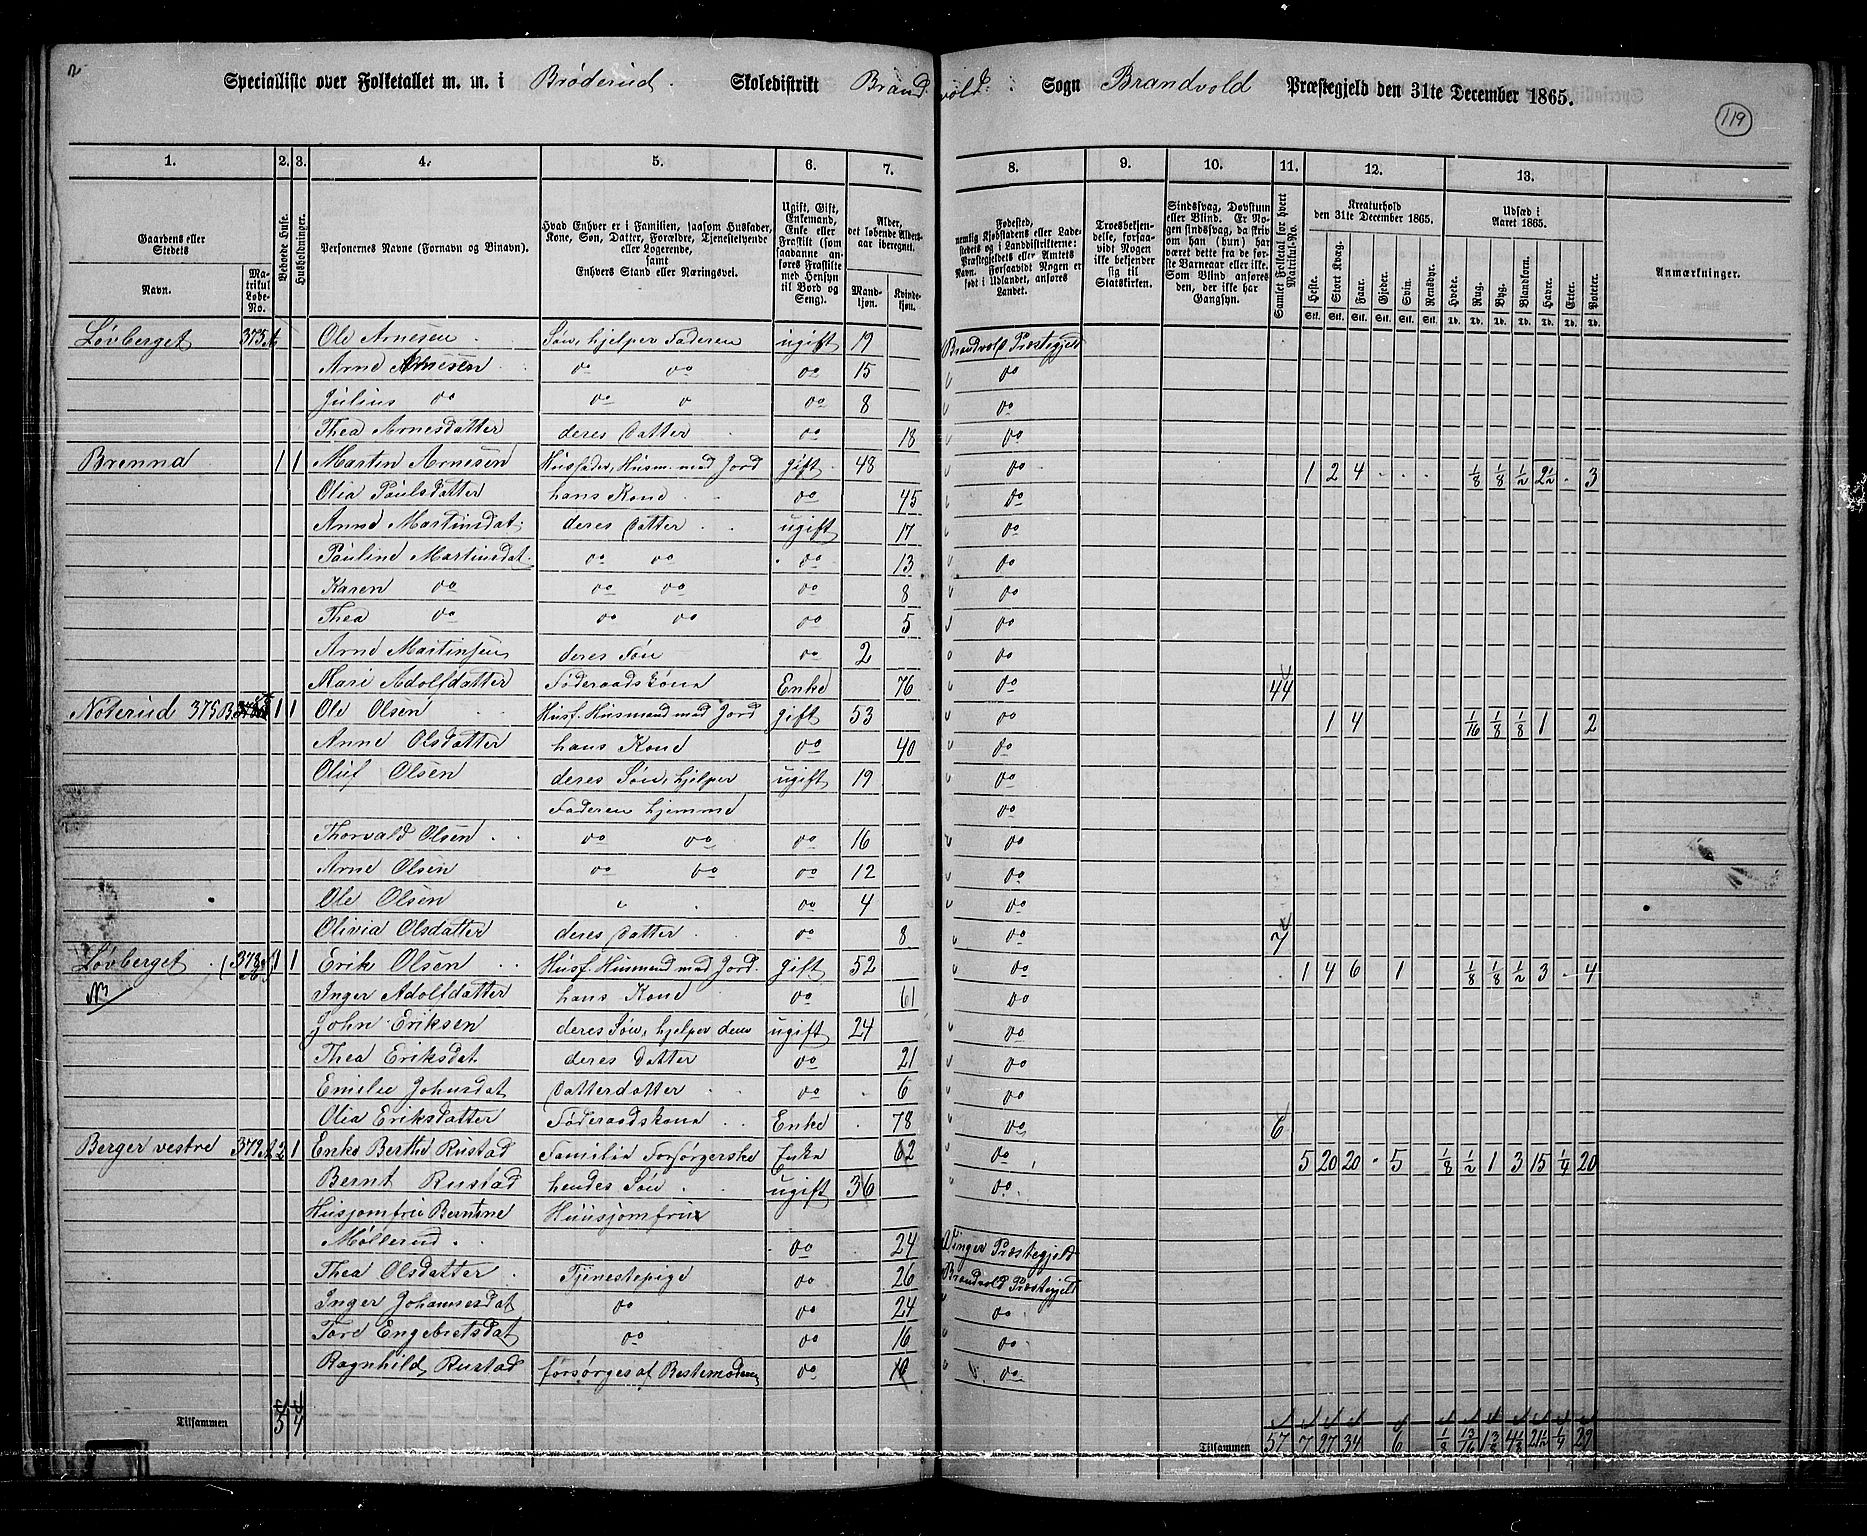 2
Specialliste over Folketallet m. m. i Brøderud Skoledistrikt Brandvold Sogn Brandvold Præstegjeld den 31te December 1865.
119
1. 2. 3. 4. 5. 6. 7. 8. 9. 10. 11. 12. 13.
Gaardens eller Stedets
Navn.
Matrikul Løbe-No.
Beboede Huse.
Husholdninger.
Personernes Navne (Fornavn og Binavn).
Hvad Enhver er i Familien, saasom Husfader, Kone, Søn, Datter, Forældre, Tjenestetyende eller Logerende, samt Enhvers Stand eller Næringsvei.
Ugift, Gift, Enkemand, Enke eller Fraskilt (som saadanne anføres Fraskilte med Hensyn til Bord og Seng).
Alder, det løbende Aldersaar iberegnet.
Mandkjøn. Kvindekjøn.
Fødested, nemlig Kjøbstadens eller Ladestedets og i Landdistrikterne: Præstegjeldets eller Amtets Navn. Forsaavidt Nogen er født i Udlandet, anføres Landet.
Troesbekjendelse, forsaavidt Nogen ikke bekjender sig til Statskirken.
Sindssvag, Døvstum eller Blind. Er Nogen sindssvag, da skriv om han (hun) har været dette fra de første Barneaar eller ikke. Som Blind anføres den, der ikke har Gangsyn.
Samlet Folketal for hvert Matrikul-No.
Kreaturhold den 31te December 1865.
Heste. Stort Kvæg. Faar. Gjeder. Svin. Rensdyr.
Udsæd i Aaret 1865.
Hvede. Rug. Byg. Blandkorn. Havre. Erter. Poteter.
Stk. Stk. Stk. Stk. Stk. Stk. Td. Td. Td. Td. Td. Td. Td.
Anmærkninger.
Løvberget 375 A Ole Arnesen Søn, hjelper Faderen ugift 19 Brandvold Præstegjeld
Arne Arnesen do do do 15 do
Julius do do do do 8 do
Thea Arnesdatter deres Datter do 18 do
Brenna 1 1 Martin Arnesen Husfader, Husm. med Jord gift 48 do 1 2 4 1/8 1/8 1/2 2 1/2 3
Olia Paulsdatter hans Kone do 45 do
Anne Martinsdat: deres Datter ugift 17 do
Pauline Martinsdat. do do do 13 do
Karen do do do do 8 do
Thea do do do do 5 do
Arne Martinsen deres Søn do 2 do
Mari Adolfdatter Føderaadskona Enke 76 do 44
Noterud 375 B 1 1 Ole Olsen Husf. Husmand med Jord gift 53 do 1 4 1/16 1/8 1/8 1 2
Anne Olsdatter hans Kone do 40 do
Oluf Olsen deres Søn, hjelper ugift 19 do
Faderen hjemme do
Thorvald Olsen do do do 16 do
Arne Olsen do do do 12 do
Ole Olsen " do 4 do
Olivia Olsdatter deres Datter do 8 do 7
Løvberget 1 1 Erik Olsen Husf. Husmand med Jord. gift 52 do 1 4 6 1 1/8 1/8 1/2 3 4
Inger Adolfdatter hans Kone do 61 do
John Eriksen deres Søn, hjelper dem ugift 24 do
Thea Eriksdat deres Datter do 21 do
Emilie Johnsdat Datterdatter do 6 do
Olia Eriksdatter Føderaadskona Enke 78 do 6
Berger vestre 379 A 2 1 Enke Berthe Rustad Familie Forsørgerske Enke 62 do 5 20 20 5 1/8 1/2 1 3 15 1/4 20
Bernt Rustad hendes Søn ugift 36 do
Husjomfru Berntine Huusjomfru
Møllerud do 24 Vinger Præstegjeld
Thea Olsdatter Tjenestepige do 26 Brandvold Præstegjeld
Inger Johannesdat do do 24 do
Tore Engebretsdat do do 16 do
Ragnhild Rustad forsørges af Bestemoderen do 10 do
Tilsammen 5 4 Tilsammen 57 7 27 34 6 1/8 13/16 1 3/8 4 1/8 21 1/2 1/4 29